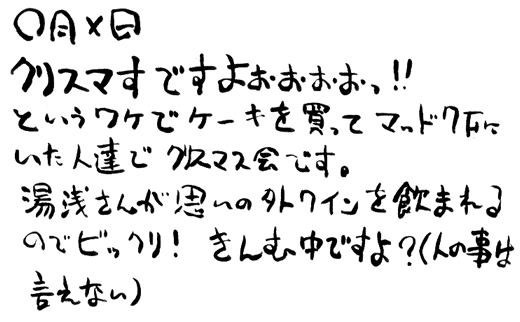 〇月×日
クリスマすですよぉおぉおっ!!
というワケでケーキを買ってマッドハウスに
いた人達でクリスマス会です。
湯浅さんが思いの外ワインを飲まれる
のでビックリ! きんむ中ですよ?(人の事は
言えない)